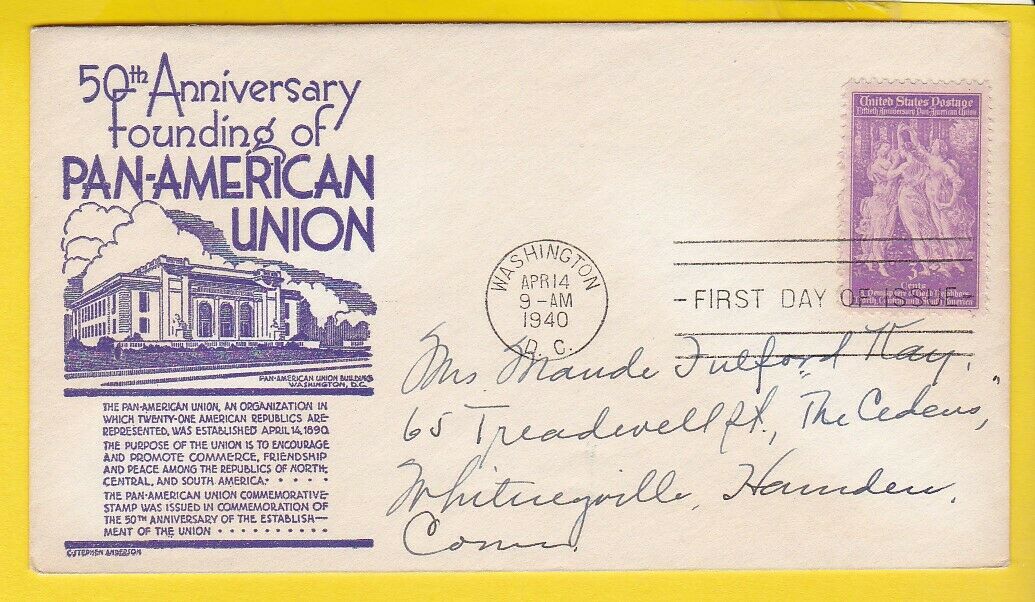 50th Anniversary
founding of
PAN-AMERICAN
UNION
PAN-AMERICAN UNION BUILDING
WASHINGTON, D.C.
THE PAN-AMERICAN UNION, AN ORGANIZATION IN
WHICH TWENTY-ONE AMERICAN REPUBLICS ARE
REPRESENTED, WAS ESTABLISHED APRIL 14, 1890.
THE PURPOSE OF THE UNION IS TO ENCOURAGE
AND PROMOTE COMMERCE, FRIENDSHIP
AND PEACE AMONG THE REPUBLICS OF NORTH,
CENTRAL, AND SOUTH AMERICA · · · · ·
THE PAN-AMERICAN UNION COMMEMORATIVE
STAMP WAS ISSUED IN COMMEMORATION OF
THE 50TH ANNIVERSARY OF THE ESTABLISH-
MENT OF THE UNION · · · · · · · · · ·
C. STEPHEN ANDERSON
WASHINGTON
APR 14
9-AM
1940
D. C.
United States Postage
Fiftieth Anniversary Pan-American Union
3 Cents 3
North, Central and South America
FIRST DAY OF ISSUE
Mrs Maude Fulford Kay,
65 Treadwell St., "The Cedars,"
Whitneyville, Hamden,
Conn.